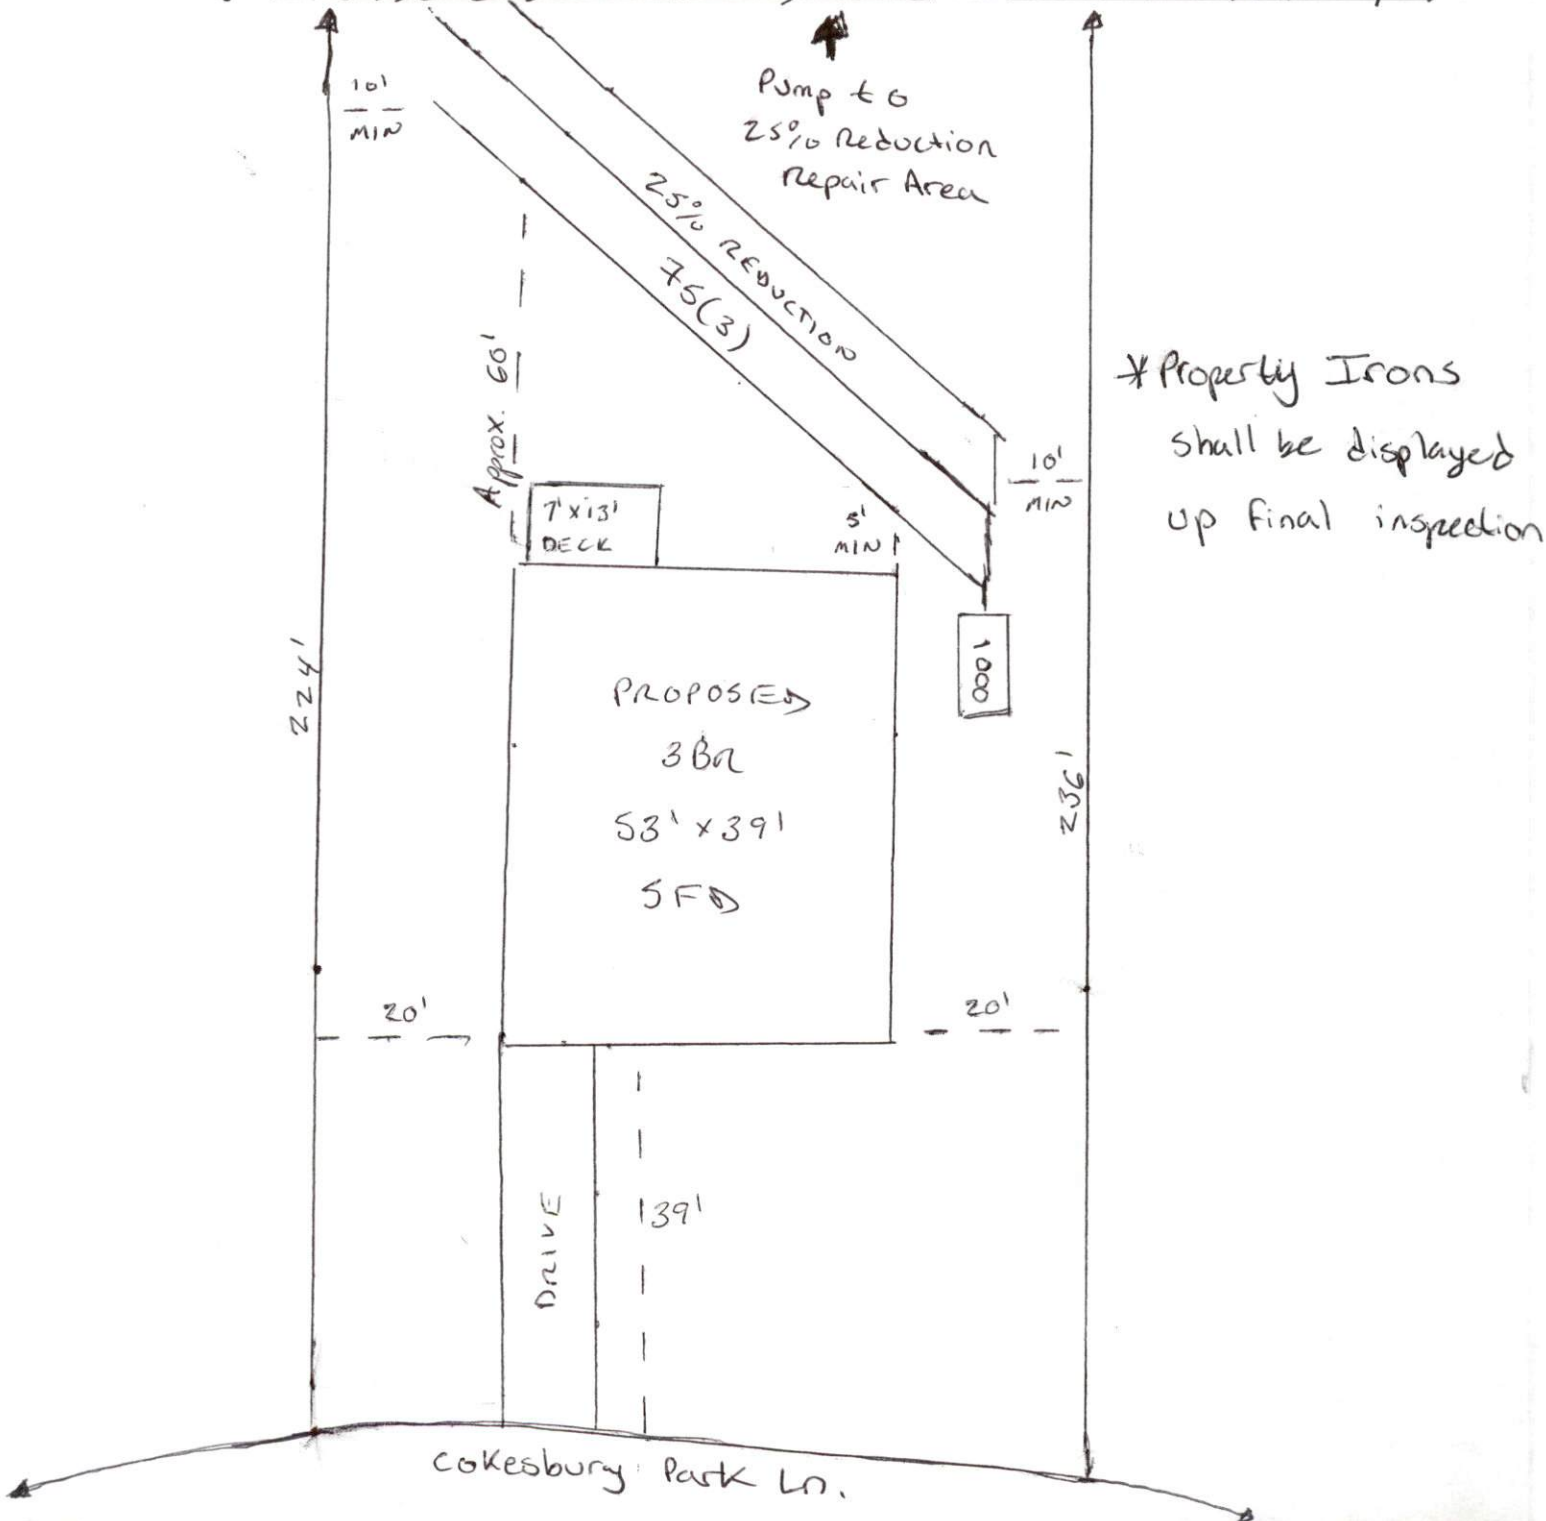 10'
MIN
Pump to
25% Reduction
Repair Area
25% REDUCTION
75(3)
Approx. 60'
* Property Irons
shall be displayed
up final inspection
10'
MIN
7'x13'
DECK
5'
MIN
1000
224'
PROPOSED
3BR
53' x 39'
SFD
236'
20'
20'
DRIVE
39'
Cokesbury Park Ln.